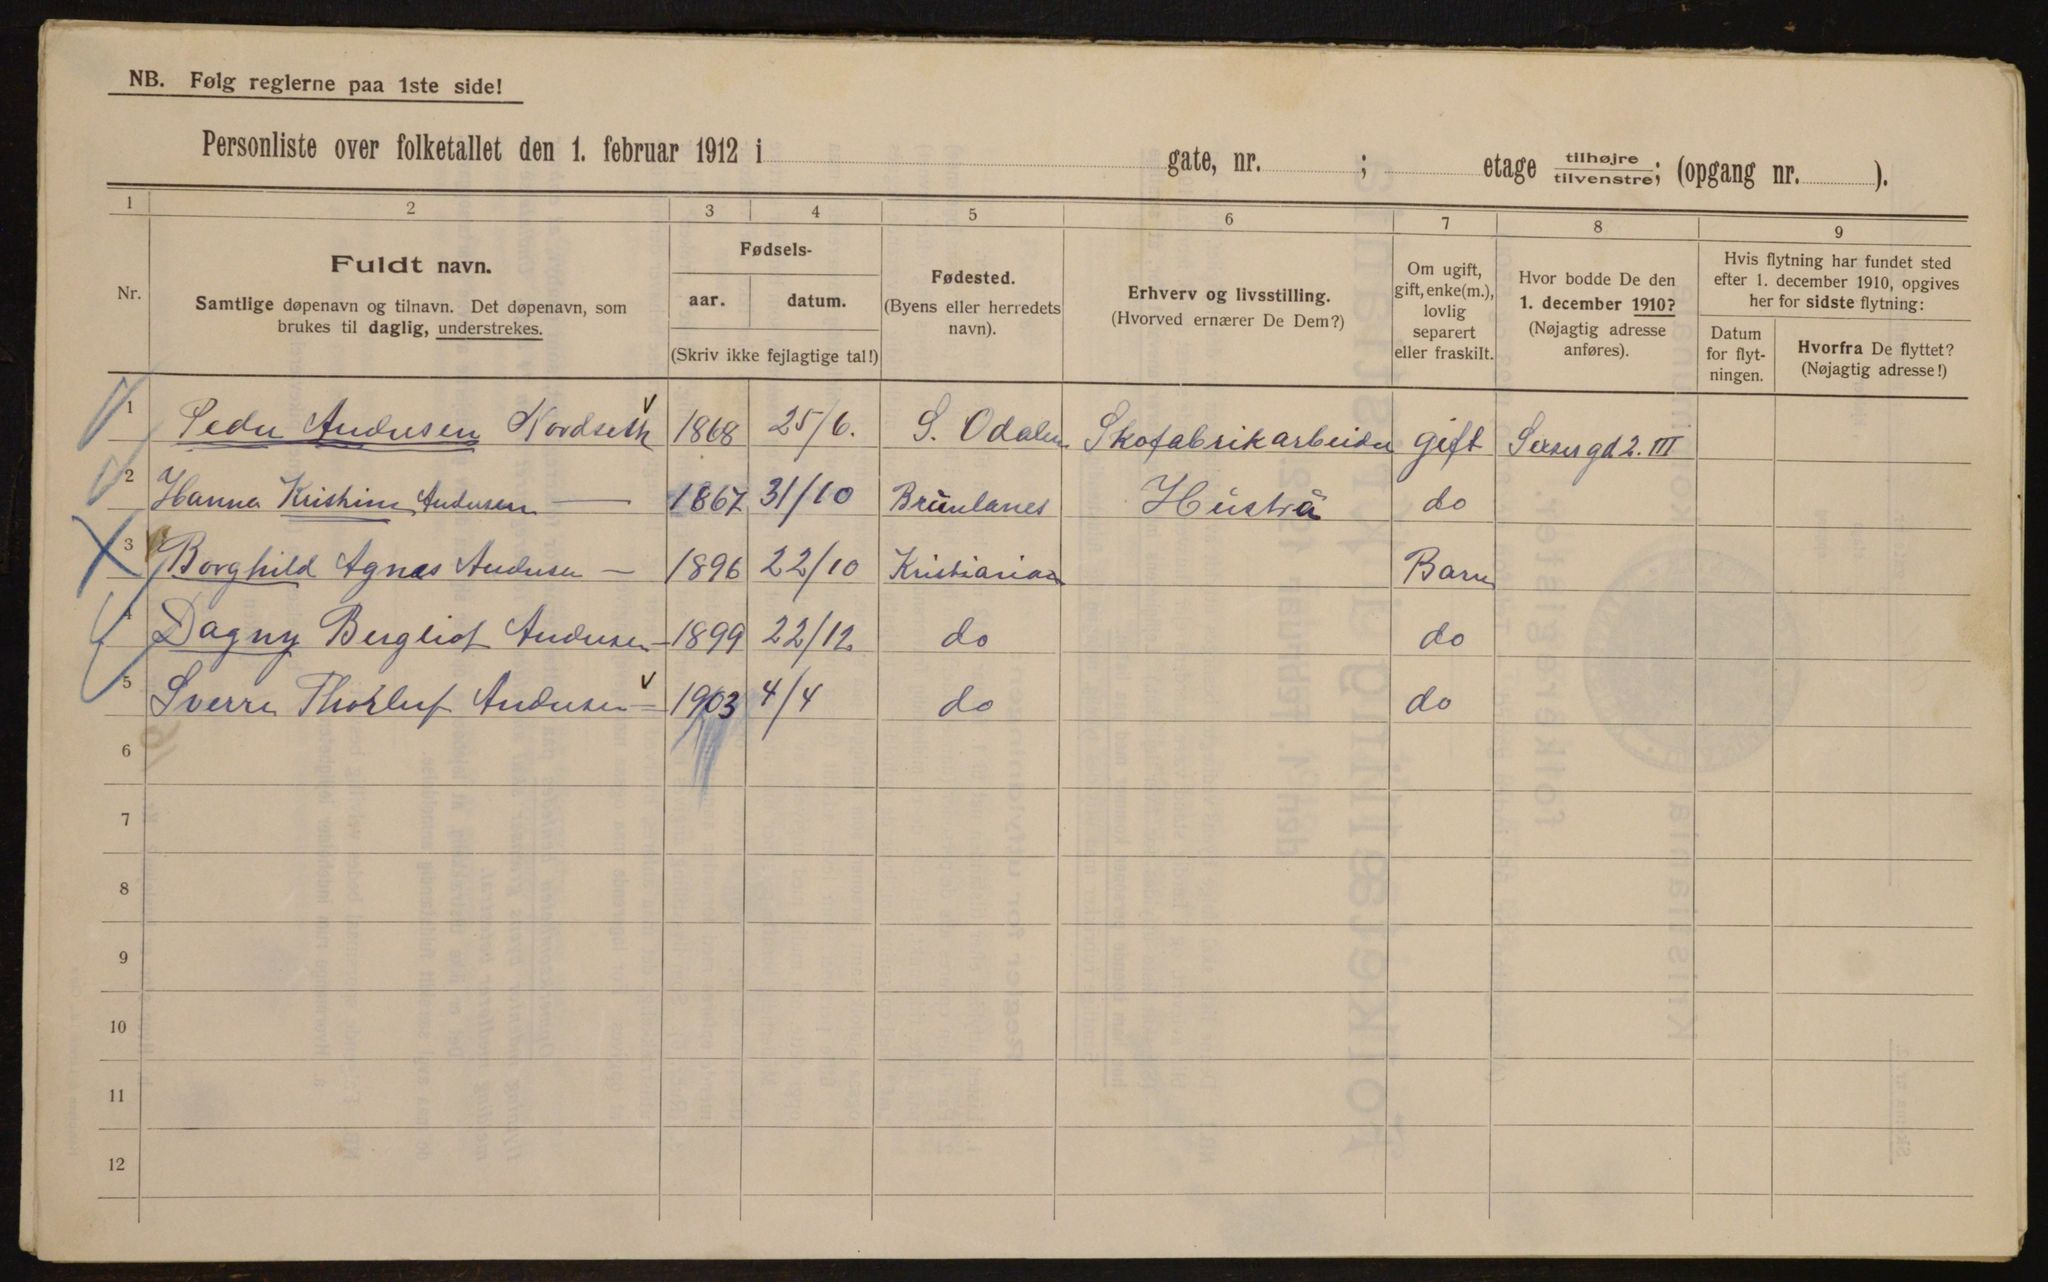 NB. Følg reglerne paa 1ste side!
Personliste over folketallet den 1. februar 1912 i gate, nr. ; etage tilhøjre/tilvenstre; (opgang nr. ).
1 2 3 4 5 6 7 8 9
Nr.
Fuldt navn.
Samtlige døpenavn og tilnavn. Det døpenavn, som
brukes til daglig, understrekes.
Fødsels-
aar. datum.
(Skriv ikke fejlagtige tal!)
Fødested.
(Byens eller herredets
navn).
Erhverv og livsstilling.
(Hvorved ernærer De Dem?)
Om ugift,
gift, enke(m.),
lovlig
separert
eller fraskilt.
Hvor bodde De den
1. december 1910?
(Nøjagtig adresse
anføres).
Hvis flytning har fundet sted
efter 1. december 1910, opgives
her for sidste flytning:
Datum
for flyt-
ningen.
Hvorfra De flyttet?
(Nøjagtig adresse!)
1 Peder Andersen Nordseth 1868 25/6. S. Odalen Skofabrikarbeider gift 2. III
2 Hanna Kristine Andersen — 1867 31/10 Brunlanes Hustru do
3 Borghild Agnes Andersen — 1896 22/10 Kristiania Barn
4 Dagny Bergliot Andersen — 1899 22/12 do do
5 Sverre Thorleif Andersen — 1903 4/4 do do
6
7
8
9
10
11
12